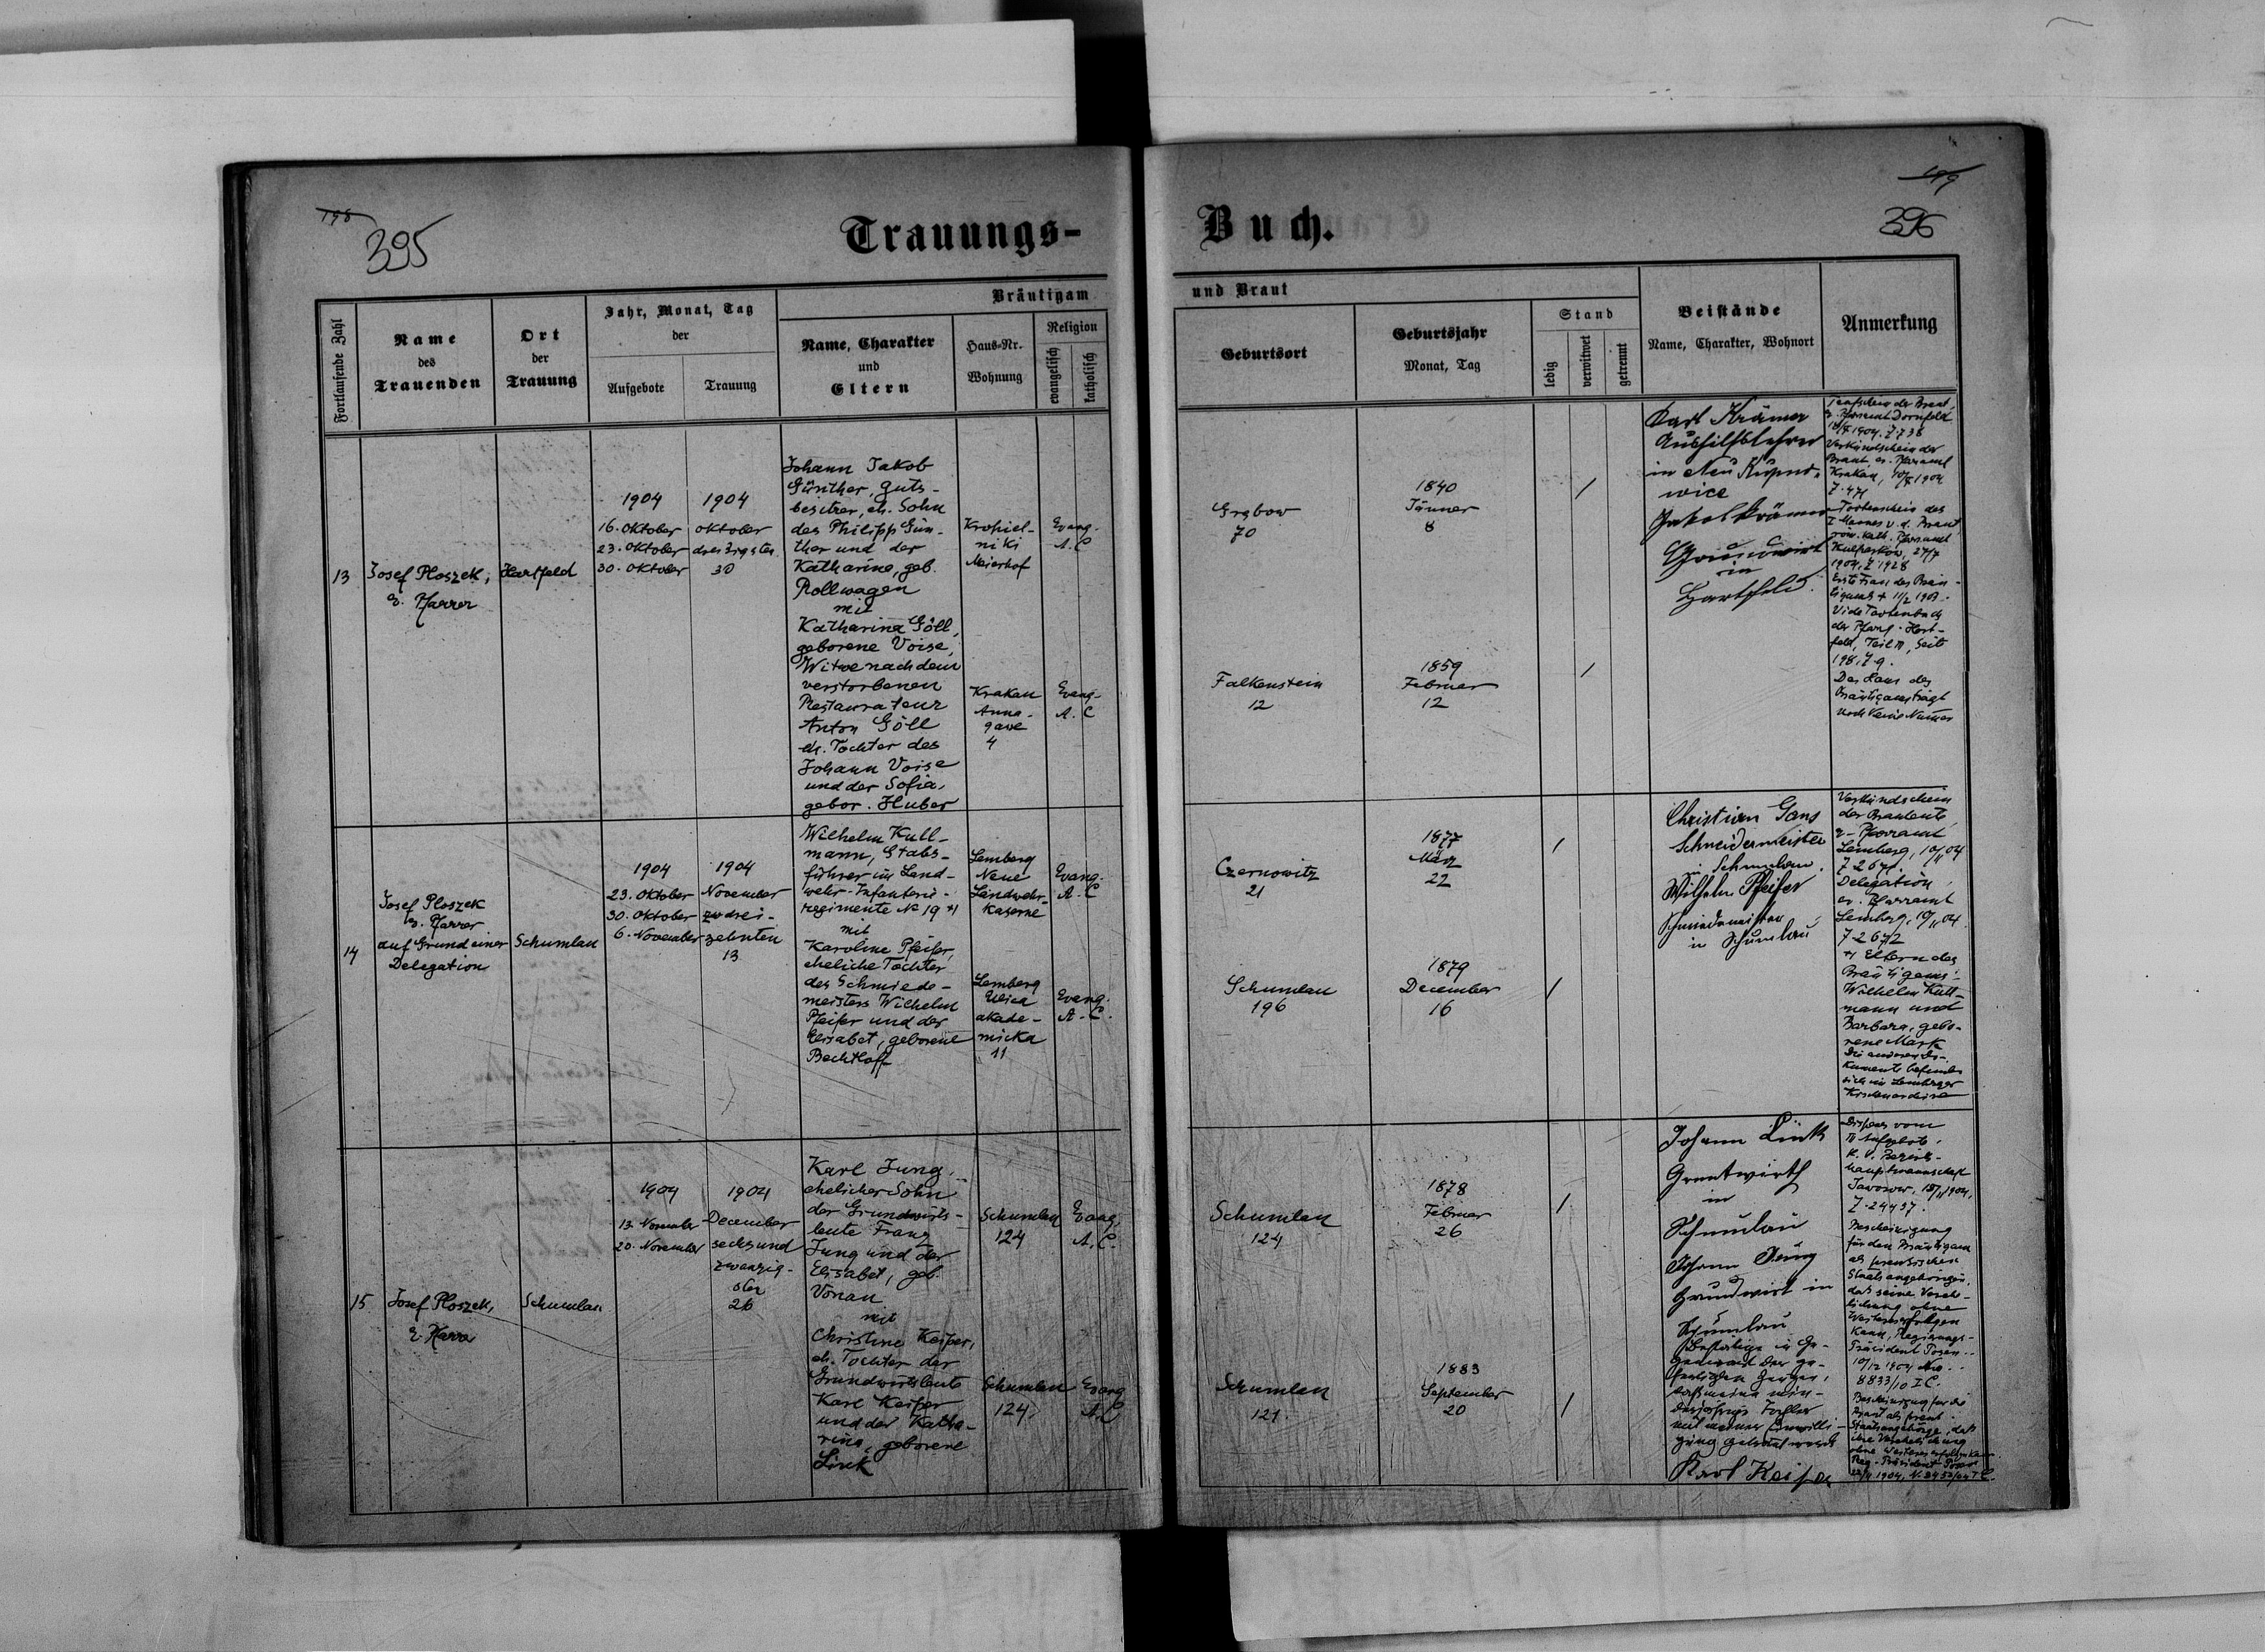 198
395
Trauungs-
Buch.
199
396
Fortlaufende Zahl
Name
des
Trauenden
Ort
der
Trauung
Jahr, Monat, Tag
der
Aufgebote
Trauung
Bräutigam
Name, Charakter
und
Eltern
Haus-Nr.
Wohnung
Religion
evangelisch
katholisch
und Braut
Geburtsort
Geburtsjahr
Monat, Tag
Stand
ledig
verwitwet
getrennt
Beistände
Name, Charakter, Wohnort
Anmerkung
13
Josef Ploszek,
e. Pfarrer
Hartfeld
1904
16. Oktober
23. Oktober
30. Oktober
1904
Oktober
dreizigsten
30
Johann Jakob
Günther, Guts-
besitzer, eh. Sohn
des Philipp Gün-
ther und der
Katharine, geb.
Rollwagen
mit
Katharina Göll,
geborene Voise,
Witwe nach dem
verstorbenen
Restaurateur
Anton Göll
eh. Tochter des
Johann Voise
und der Sofia,
gebor. Huber
Krohiel-
niki
Meierhof
Evang.
A. C
Krakau
Anna-
gasse
4
Evang.
A. C
Grabow
70
1840
Jänner
8
Falkenstein
12
1859
Februar
12
Karl Krämer
Aushilfslehrer
in Neu Kupno-
wice
Jakob Krämer
Grundwirt
in
Hartfeld.
Taufschein der Braut,
e. Pfarramt Dornfeld
1904. Z 738
Verkündschein der
Braut, ev. Pfarramt
Krakau, 1904
Z. 471
Totenschein des
I Mannes v. d. Braut
röm. kath. Pfarramt
Kulparkow, 27/7
1904, Z 1928
Erste Frau des Bräu-
tigams + 11/2 1903.
Vide Totenbuch
der Pfarre Hart-
feld, Teil III, Seite
198, Z 9.
Das Haus des
Bräutigams trägt
noch keine Numer
14
Josef Ploszek
e. Pfarrer
auf Grund einer
Delegation
Schumlau
1904
23. Oktober
30. Oktober
6. November
1904
November
drei-
zehnten
13
Wilhelm Kull-
mann, Stabs-
führer im Land-
wehr-Infanterie-
regimente No 19 +)
mit
Karoline Pfeifer,
eheliche Tochter
des Schmiede-
meisters Wilhelm
Pfeifer und der
Elisabet, geborene
Bechtloff
Lemberg
Neue
Landwehr-
Kaserne
Evang.
A. C
Lemberg
Ulica
akade-
micka
11
Evang.
A. C.
Czernowitz
21
1877
März
22
Schumlau
196
1879
December
16
Christian Gans
Schneidermeister
in Schumlau.
Wilhelm Pfeifer
Schmiedemeister
in Schumlau
Verkündschein
der Brautleute,
e. Pfarramt
Lemberg, 10/11 04
Z 2671.
Delegation,
ev. Pfarramt
Lemberg, 10/11 04.
Z 2672
+) Eltern des
Bräutigams:
Wilhelm Kull-
mann und
Barbara, gebo-
rene Mark
Die anderen Do-
kumente befinden
sich im Lemberger
Kirchenarchive
15
Josef Ploszek,
e. Pfarrer
Schumlau
1904
13. November
20. November
1904
December
sechsund
zwanzig-
sten
26
Karl Jung,
ehelicher Sohn
der Grundwirts-
leute Franz
Jung und der
Elisabet, geb.
Vonau
mit
Christine Keiper,
eh. Tochter der
Grundwirtsleute
Karl Keiper
und der Katha-
rina, geborene
Link
Schumlau
124
Evang.
A. C.
Schumlau
124.
Evang
A. C
Schumlau
124
1878
Februar
26
Schumlau
121.
1883
September
20
Johann Link
Gruntwirth
in
Schumlau
Johann Jung
Grundwirt in
Schumlau
Bestätige in Ge-
genwart der ge-
fertigten Zeugen,
daß meine min-
derjährige Tochter
mit meiner Einwilli-
gung getraut wurde
Karl Keiper
Dispens vom
III Aufgebote,
K. K. Bezirks-
hauptmannschaft
Jaworow, 1904,
Z. 24497.
Bescheinigung
für den Bräutigam
als preussischen
Staatsangehörigen,
daß seine Verehe-
lichung ohne
Weiteres erfolgen
kann, Regierungs-
Präsident Posen
10/12 1904 No.
8833/10 I C.
Bescheinigung für die
Braut als preuß.
Staatsangehörige, daß
ihre Verehelichung
ohne Weiteres erfolgen kann
Reg. Präsident Posen
1904, N. 8452/04 I C.